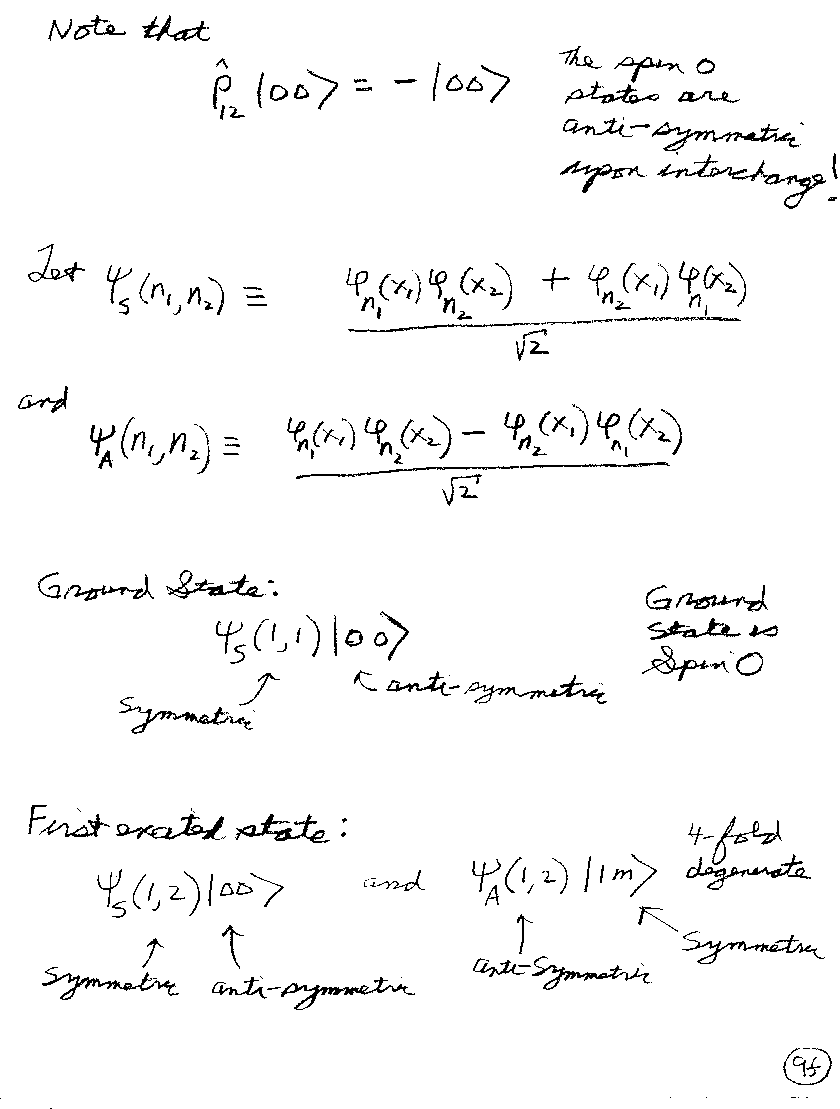 Note that
P̂₁₂ |00> = - |00>
The spin 0
states are
anti-symmetric
upon interchange!
Let ψ_S(n₁,n₂) ≡ (φ_n₁(x₁) φ_n₂(x₂) + φ_n₂(x₁) φ_n₁(x₂)) / √2
and
ψ_A(n₁,n₂) ≡ (φ_n₁(x₁) φ_n₂(x₂) - φ_n₂(x₁) φ_n₁(x₂)) / √2
Ground State:
ψ_S(1,1) |00>
Symmetric ↗ ↖ anti-symmetric
Ground
State is
Spin 0
First excited state:
ψ_S(1,2) |00> and ψ_A(1,2) |1m>
4-fold
degenerate
↗ ↑ ↑ ↖
Symmetric anti-symmetric anti-Symmetric Symmetric
95